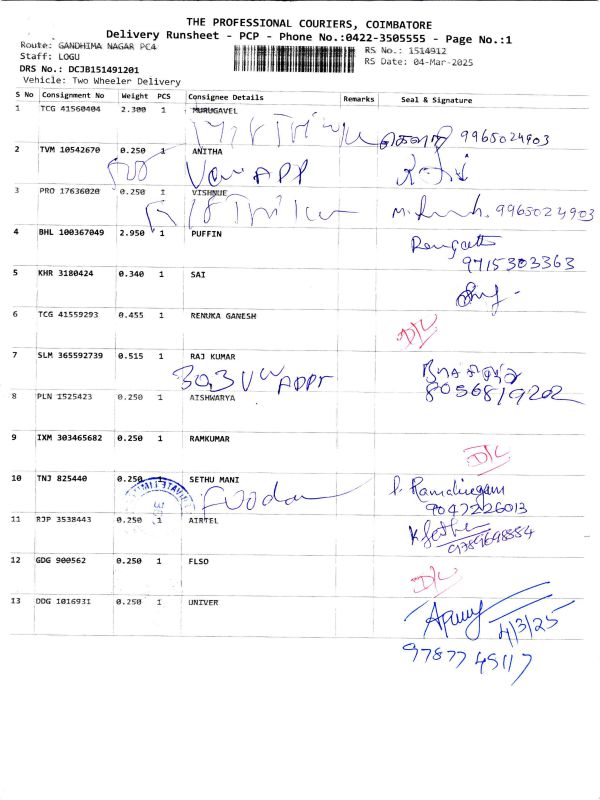 THE PROFESSIONAL COURIERS, COIMBATORE
Delivery Runsheet - PCP - Phone No.:0422-3505555 - Page No.:1
Route: GANDHIMA NAGAR PC4
RS No.: 1514912
Staff: LOGU
RS Date: 04-Mar-2025
DRS No.: DCJB151491201
Vehicle: Two Wheeler Delivery
S No Consignment No Weight PCS Consignee Details Remarks Seal & Signature
1 TCG 41560404 2.300 1 MURUGAVEL
9965024903
2 TVM 10542670 0.250 1 ANITHA
3 PRO 17636020 0.250 1 VISHNUE
9965024903
4 BHL 100367049 2.950 1 PUFFIN
9715303363
5 KHR 3180424 0.340 1 SAI
6 TCG 41559293 0.455 1 RENUKA GANESH
D/L
7 SLM 365592739 0.515 1 RAJ KUMAR
303
8056819202
8 PLN 1525423 0.250 1 AISHWARYA
9 IXM 303465682 0.250 1 RAMKUMAR
D/L
10 TNJ 825440 0.250 1 SETHU MANI
P. Ramalingam
9047226013
11 RJP 3538443 0.250 1 AIRTEL
9789698554
12 GDG 900562 0.250 1 FLSO
D/L
13 DDG 1016931 0.250 1 UNIVER
4/3/25
9787745117